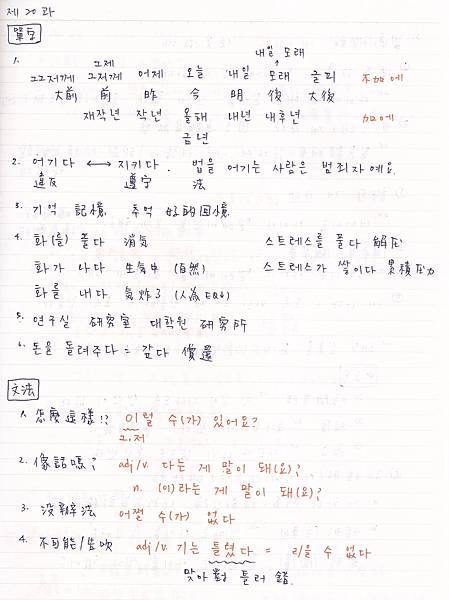 제 20 과
單字
내일 모래
그제 ↑
1. 그그저께 그저께 어제 오늘 내일 모래 글피 不加에
大前 前 昨 今 明 後 大後
재작년 작년 올해 내년 내후년 加에
금년
2. 어기다 ↔ 지키다. 법을 어기는 사람은 범죄자예요.
違反 遵守 法
3. 기억 記憶 추억 好的回憶
4. 화(를) 풀다 消氣 스트레스를 풀다 解壓
화가 나다 生氣中 (自然) 스트레스가 쌓이다 累積压力
화를 내다 氣炸了 (人為EQ低)
5. 연구실 硏究室 대학원 硏究所
6. 돈을 돌려주다 = 갚다 償還
文法
1. 怎麼這樣!? 이럴 수(가) 있어요?
그,저
2. 像話嗎? adj/v. 다는 게 말이 돼(요)?
n. (이)라는 게 말이 돼(요)?
3. 沒辦法 어쩔 수(가) 없다
4. 不可能/ adj/v. 기는 틀렸다 = ㄹ/을 수 없다
맞아 對 틀려 錯.